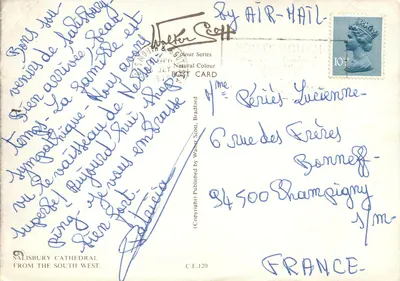 Bons sou-
venirs de Salisbury
Bien arrivée. beau
temps - La famille est
sympathique - Nous avons
vu le vaisseau de Nelson,
superbe! Aujourd'hui shop-
ping - je vous embrasse
bien fort.
Patricia
SALISBURY CATHEDRAL
FROM THE SOUTH WEST.
Walter Scott
Colour Series
Natural Colour
POST CARD
(Copyright Published by Walter Scott, Bradford)
C.E.120
By AIR-MAIL
10
Mme Périés Lucienne-
6 rue des Frères
Bonneff-
94500 Champigny
s/m
FRANCE-